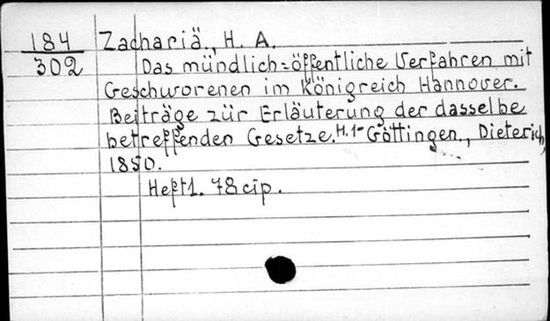 184 Zachariä., H. A.
302 Das mündlich=öffentliche Verfahren mit
Geschworenen im Königreich Hannover.
Beiträge zür Erläuterung der dasselbe
betreffenden Gesetze. H.1- Göttingen., Dieterich,
1850.
Heft1. 78 cip.